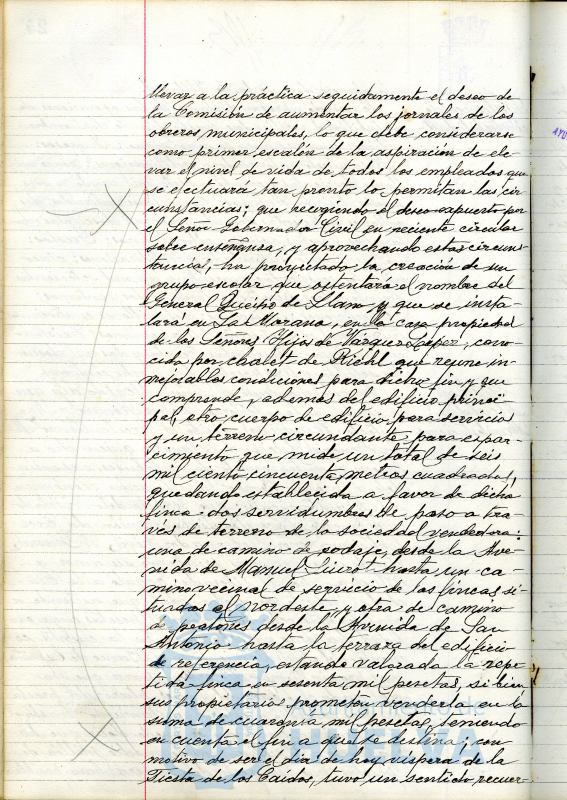 llevar a la práctica seguidamente el deseo de
la Comisión de aumentar los jornales de los
obreros municipales, lo que debe considerarse
como primer escalón de la aspiración de ele-
var el nivel de vida de todos los empleados que
se efectuará tan pronto lo permitan las cir
cunstancias; que recogiendo el deseo expuesto por
el Señor Gobernador Civil en reciente circular
sobre enseñanza, y aprovechando estas circuns-
tancias, ha proyectado la creación de un
grupo escolar que ostentará el nombre del
General Queipo de Llano y que se insta-
lará en La Morana, en la casa propiedad
de los Señores Hijos de Vázquez López, cono-
cida por chalet de Riehl que reune in-
mejorables condiciones para dicho fin y que
comprende, ademas del edificio princi-
pal, otro cuerpo de edificio para servicios
y un terreno circundante para espar-
cimiento que mide un total de seis
mil ciento cincuenta metros cuadrados,
quedando establecida a favor de dicha
finca dos servidumbres de paso a tra-
vés de terreno de la sociedad vendedora:
una de camino de rodaje, desde la Ave-
nida de Manuel Siurot hasta un ca-
mino vecinal de servicio de las fincas si-
tuadas al nordeste, y otra de camino
de peatones desde la Avenida de San
Antonio hasta la terraza del edificio
de referencia, estando valorada la repe-
tida finca en sesenta mil pesetas, si bien
sus propietarios prometen venderla en la
suma de cuarenta mil pesetas, teniendo
en cuenta el fin a que se destina; con
motivo de ser el dia de hoy víspera de la
Fiesta de los Caídos, tuvo un sentido recuer-
Ayuntamiento de
HUELVA